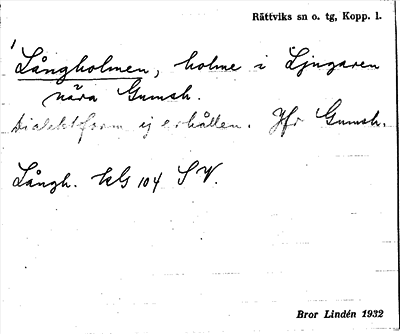 Rättviks sn o. tg, Kopp. l.
Långholmen, holme i Ljugaren
nära Gumsh.
Dialektform ej erhållen. Jfr Gumsh.
Långh. kbl 104 SV.
Bror Lindén 1932